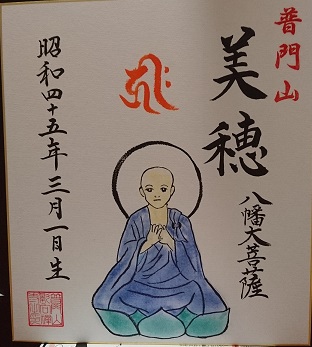 普門山
美穂
八幡大菩薩
昭和四十五年三月一日生